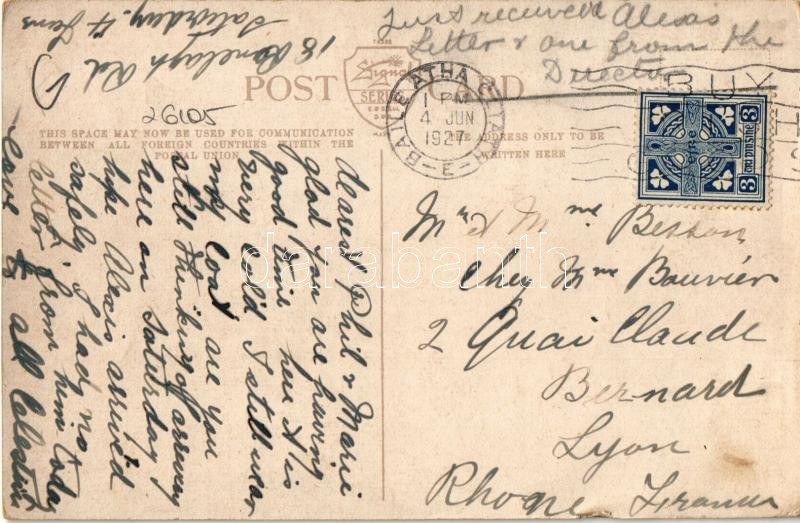 Just received Alexis
letter & one from the
Director
18 Ranelagh Rd
Saturday. 4 June
26105
FROM
Signal
SERIES
POST CARD
THIS SPACE MAY NOW BE USED FOR COMMUNICATION
BETWEEN ALL FOREIGN COUNTRIES WITHIN THE
POSTAL UNION.
THE ADDRESS ONLY TO BE
WRITTEN HERE
BAILE ATHA CLIATH
1 PM
4 JUN
1927
E
BUY
éire
3
dearest Phil & Marie
glad you are having
good time here it is
very cold I still wear
my coat are you
still thinking of arriving
here on Saturday
hope Alexis arrived
safely I had no
letter from him today
love to all Celestine
Mr & Mme Besson
Chez Mme Bouvier
2 Quai Claude
Bernard
Lyon
Rhone France
darabanth